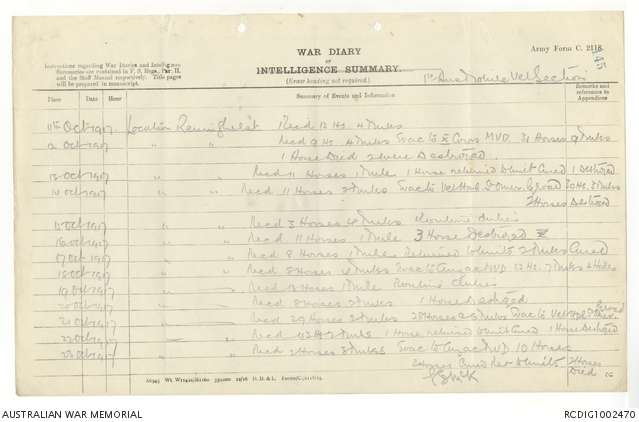 WAR DIARY
or
INTELLIGENCE SUMMARY.
(Erase heading not required).
Army Form C. 2118.
Instructions regarding War Diaries and Intelligence
Summaries are contained in F. S. Regs., Part II.
and the Staff Manual respectively. Title pages
will be prepared in manuscript.
1st Aust Mobile Vet Section
Place Date Hour Summary of Events and Information Remarks and references to Appendices
11th Oct 1917 Location Reninghelst Recd 12 Hs. 4 Mules
Oct 1917 " " Recd 9 Hs. 4 Mules Evac to X Corps MVD 21 Horses 9 Mules
1 Horse Died 2 were Destroyed
13 Oct 1917 " " Recd 11 Horses 1 Mule 1 Horse returned to Unit Cured 1 Destroyed
14 Oct 1917 " " Recd 11 Horses 2 Mules Evac to Vet Hosp St Omer by road 20 Hs. 3 Mules
2 Horses Destroyed
15 Oct 1917 " " Recd 3 Horses 4 Mules Routine duties
16 Oct 1917 " " Recd 11 Horses 1 Mule 3 Horse Destroyed
17 Oct 1917 " " Recd 8 Horses 1 Mule Returned to Units 2 Mules Cured
18 Oct 1917 " " Recd 8 Horses 6 Mules Evac to Anzac MVD 12 Hs. 7 Mules
19 Oct 1917 " " Recd Horses 1 Mule Routine duties
20 Oct 1917 " " Recd 8 Horses 2 Mules 1 Horse Destroyed
21 Oct 1917 " " Recd 29 Horses 2 Mules 28 Horses 2 Mules Evac to Vet Hosp by road
22 Oct 1917 " " Recd Mules 1 Horse returned to Unit Cured 1 Horse Destroyed
23 Oct 1917 " " Recd 2 Horses 3 Mules Evac to Anzac MVD 10 Horses
2 Horses Cured to Units 2 Horses
Died
AUSTRALIAN WAR MEMORIAL
RCDIG1002470